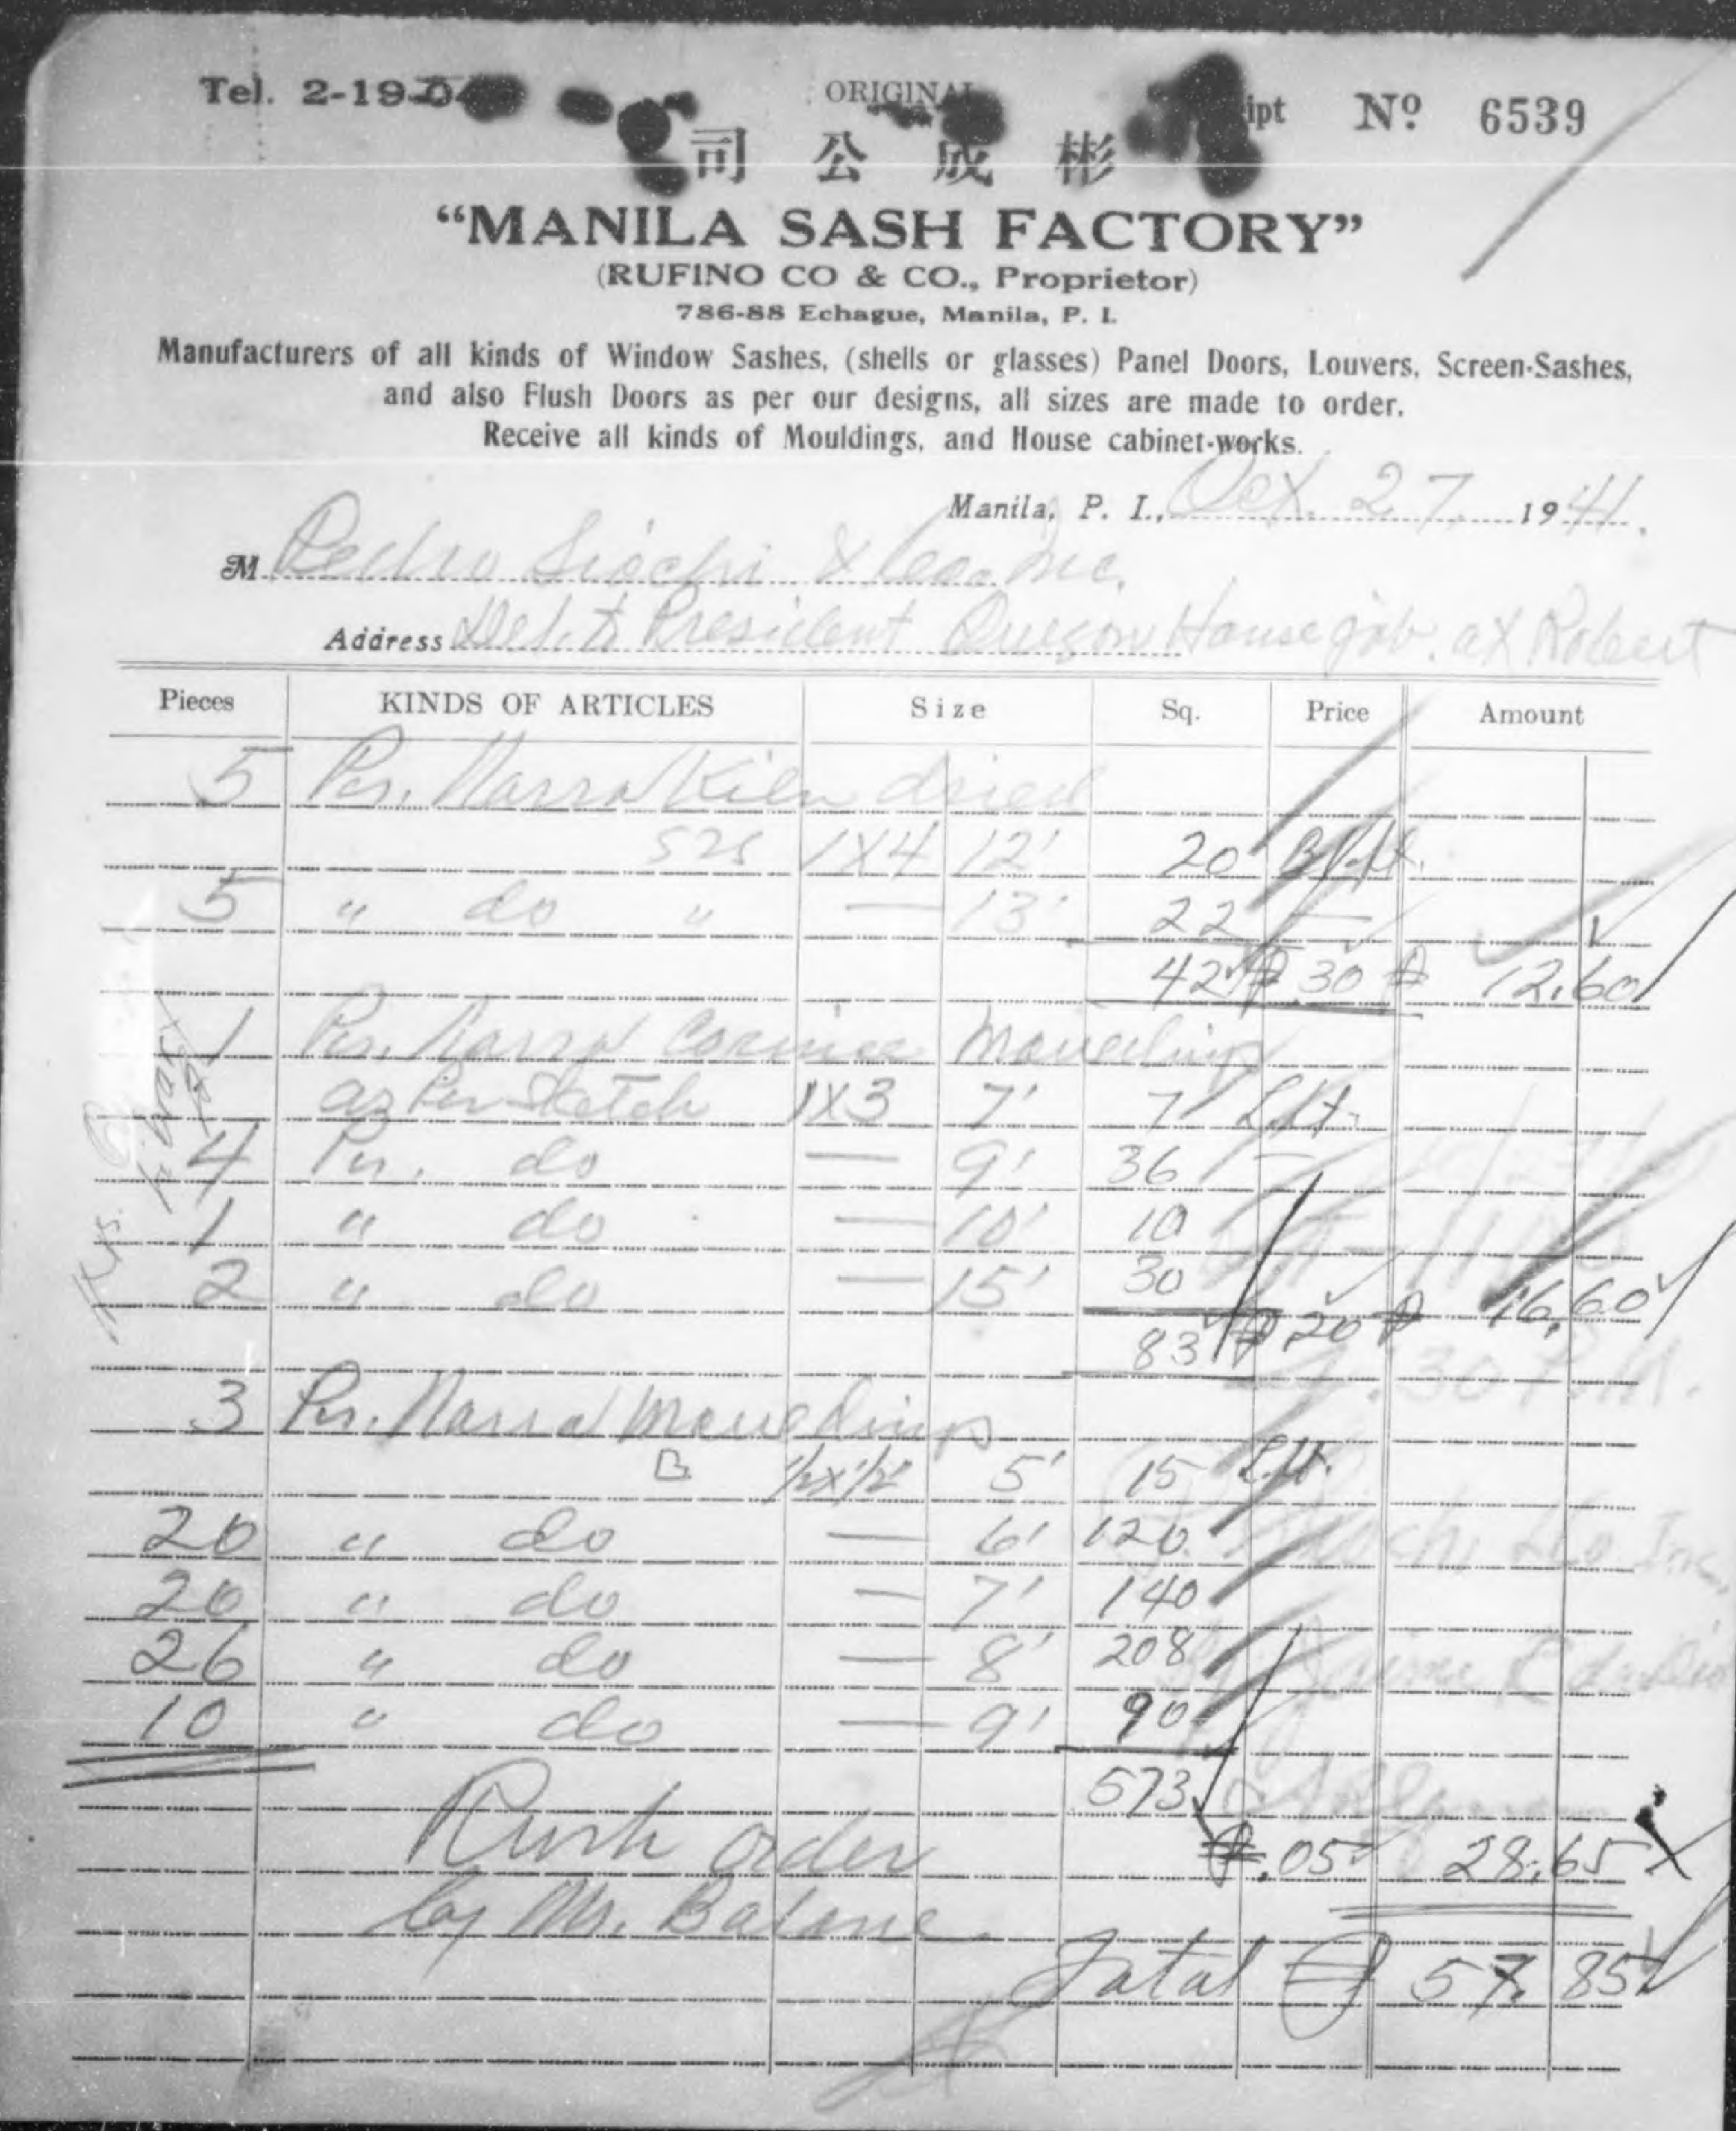 Tel. 2-19-04
ORIGINAL
Nº 6539
司公成彬
“MANILA SASH FACTORY”
(RUFINO CO & CO., Proprietor)
786-88 Echague, Manila, P. I.
Manufacturers of all kinds of Window Sashes, (shells or glasses) Panel Doors, Louvers, Screen-Sashes,
and also Flush Doors as per our designs, all sizes are made to order.
Receive all kinds of Mouldings, and House cabinet-works.
Manila, P. I., Oct. 27 1941.
M Pedro Siochi & Co. Inc.
Address Del. to President Quezon House job. at Robert
Pieces KINDS OF ARTICLES Size Sq. Price Amount
5 Pcs. Narra Kiln dried
S2S 1X4 12' 20 Bd.ft.
5 " do " — 13' 22 —
42 ₱ .30 ₱ 12.60
1 Pcs. Narra Cornice Moulding
as Per Sketch 1X3 7' 7 L.ft.
4 Pcs. do — 9' 36 —
1 " do — 10' 10
2 " do — 15' 30
83 ₱ 20 ₱ 16.60
3 Pcs. Narra Mouldings
1/2x1/2 5' 15 L.ft.
20 " do — 6' 120
20 " do — 7' 140
26 " do — 8' 208
10 " do — 9' 90
573
₱.05 28.65
Rush order
by Mr.
Total ₱ 57.85